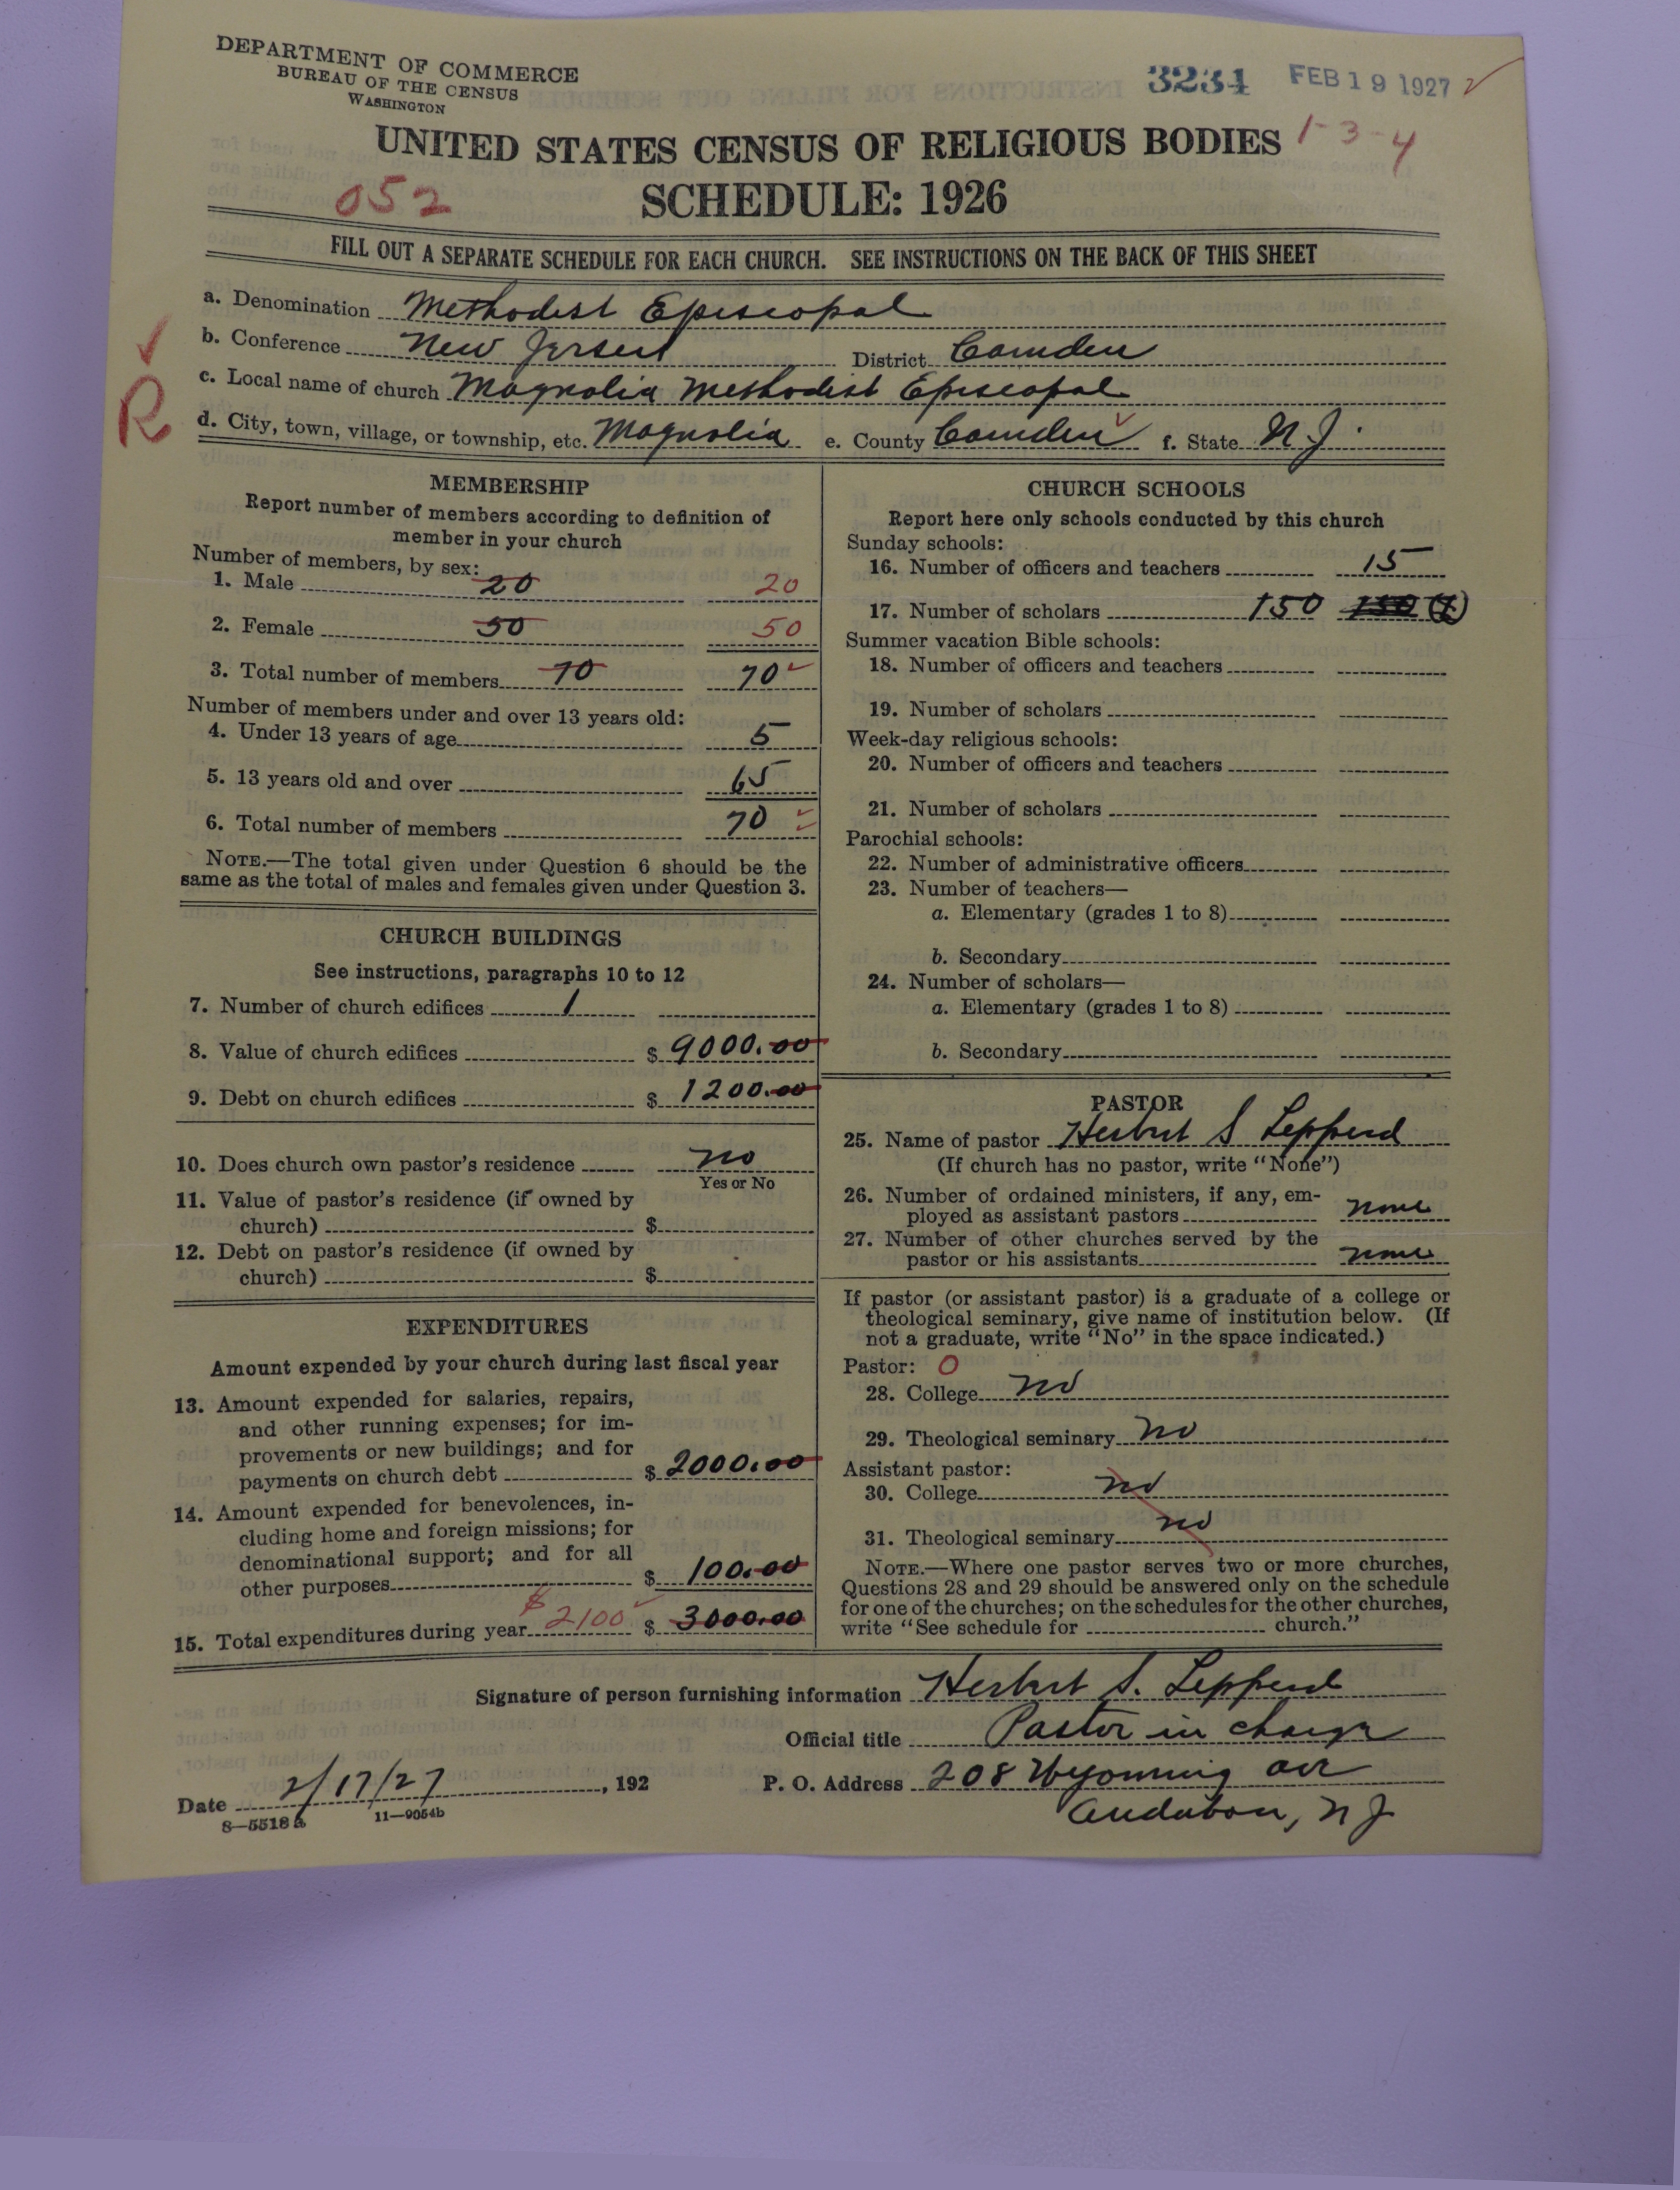 DEPARTMENT OF COMMERCE
BUREAU OF THE CENSUS
WASHINGTON
3234 FEB 19 1927
UNITED STATES CENSUS OF RELIGIOUS BODIES 1-3-4
052 SCHEDULE: 1926
FILL OUT A SEPARATE SCHEDULE FOR EACH CHURCH. SEE INSTRUCTIONS ON THE BACK OF THIS SHEET
a. Denomination Methodist Episcopal
b. Conference New Jersey District Camden
c. Local name of church Magnolia Methodist Episcopal
R
d. City, town, village, or township, etc. Magnolia e. County Camden f. State N.J.
MEMBERSHIP
Report number of members according to definition of
member in your church
Number of members, by sex:
1. Male 20 20
2. Female 50 50
3. Total number of members 70 70
Number of members under and over 13 years old:
4. Under 13 years of age 5
5. 13 years old and over 65
6. Total number of members 70
NOTE.—The total given under Question 6 should be the
same as the total of males and females given under Question 3.
CHURCH BUILDINGS
See instructions, paragraphs 10 to 12
7. Number of church edifices 1
8. Value of church edifices $ 9000.00
9. Debt on church edifices $ 1200.00
10. Does church own pastor's residence No
Yes or No
11. Value of pastor's residence (if owned by
church) $
12. Debt on pastor's residence (if owned by
church) $
EXPENDITURES
Amount expended by your church during last fiscal year
13. Amount expended for salaries, repairs,
and other running expenses; for im-
provements or new buildings; and for
payments on church debt $ 2000.00
14. Amount expended for benevolences, in-
cluding home and foreign missions; for
denominational support; and for all
other purposes $ 100.00
15. Total expenditures during year $ 2100 $ 3000.00
CHURCH SCHOOLS
Report here only schools conducted by this church
Sunday schools:
16. Number of officers and teachers 15
17. Number of scholars 150 150
Summer vacation Bible schools:
18. Number of officers and teachers
19. Number of scholars
Week-day religious schools:
20. Number of officers and teachers
21. Number of scholars
Parochial schools:
22. Number of administrative officers
23. Number of teachers—
a. Elementary (grades 1 to 8)
b. Secondary
24. Number of scholars—
a. Elementary (grades 1 to 8)
b. Secondary
PASTOR
25. Name of pastor Herbert S Lepperd
(If church has no pastor, write "None")
26. Number of ordained ministers, if any, em-
ployed as assistant pastors none
27. Number of other churches served by the
pastor or his assistants none
If pastor (or assistant pastor) is a graduate of a college or
theological seminary, give name of institution below. (If
not a graduate, write "No" in the space indicated.)
Pastor: O
28. College no
29. Theological seminary no
Assistant pastor:
30. College no
31. Theological seminary no
NOTE.—Where one pastor serves two or more churches,
Questions 28 and 29 should be answered only on the schedule
for one of the churches; on the schedules for the other churches,
write "See schedule for church."
Signature of person furnishing information Herbert S. Lepperd
Official title Pastor in charge
Date 2/17/27, 192 P. O. Address 208 Wyoming ave
8—5518 a 11—9054b Audubon, N J